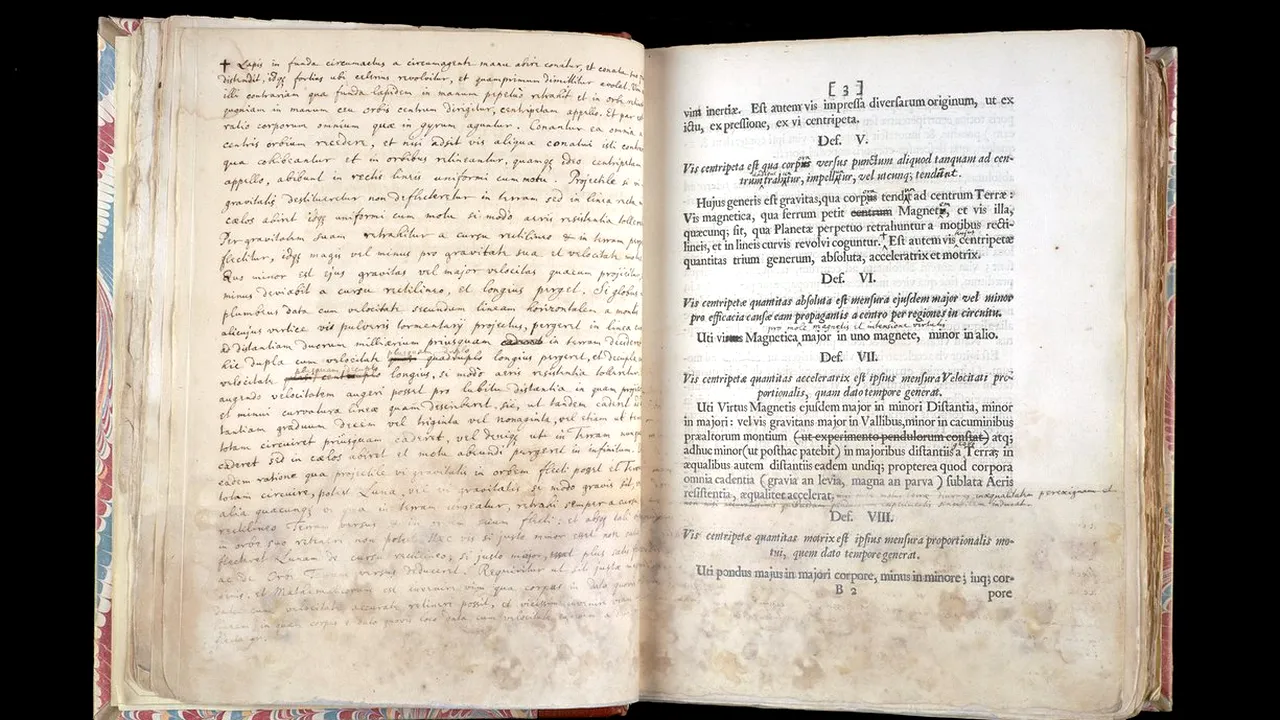 ✝ Lapis in funda circumactus a circumagente manu abire conatur, et conatu suo
distendit, idq; fortius ubi celerius revolvitur, et quamprimum dimittitur evolat. Vim
illi contrariam qua funda lapidem in manum perpetuo retrahit et in orbe retinet
quoniam in manum ceu orbis centrum dirigitur, centripetam appello. Et par est
ratio corporum omnium quæ in gyrum aguntur. Conantur ea omnia a
centris orbium recedere, et nisi adsit vis aliqua conatui isti contraria
qua cohibeantur et in orbibus retineantur, quamq; ideo centripetam
appello, abibunt in rectis lineis uniformi cum motu. Projectile si vi
gravitatis destitueretur non deflecteretur in terram sed in linea recta
cælos abiret idq; uniformi cum motu si modo aeris resistentia tolleretur
Per gravitatem suam retrahitur a cursu rectilineo & in terram perpetuo
flectitur, idq; magis vel minus pro gravitate sua et velocitate motus
Quo minor est ejus gravitas vel major velocitas quacum projicitur
minus deviabit a cursu rectilineo, et longius perget. Si globus
plumbeus data cum velocitate secundum lineam horizontalem a montis
alicujus vertice vi pulveris tormentarij projectus, pergeret in linea curva
ad distantiam duorum milliarium priusquam in terram decideret
hic dupla cum velocitate quasi duplo longius pergeret, et decupla cum
velocitate longius, si modo aeris resistentia tolleretur
augendo velocitatem augeri posset pro lubitu distantia in quam projiceretur
et minui curvatura lineæ quam describeret, sic, ut tandem caderet in
distantiam graduum decem vel triginta vel nonaginta, vel etiam ut terram
totam circuiret priusquam caderet, vel deniq; ut in Terram nunquam
caderet sed in cælos abiret et motu abeundi pergeret in infinitum.
eadem ratione qua projectile vi gravitatis in orbem flecti posset et Terram
totam circuire, potest Luna, vel vi gravitatis, si modo gravis sit, vel
alia quacunq; vi qua in terram urgeatur, retrahi semper a cursu
rectilineo Terram versus et in orbem suum flecti: et absq; tali vi
in orbe suo retineri non potest. Hæc vis si justo minor esset non satis
flecteret Lunam de cursu rectilineo, si justo major, plus satis flecteret
ac de Orbe Terram versus deduceret. Requiritur ut sit justæ magnitudinis
et Mathematicorum est invenire vim qua corpus in dato quovis
data cum velocitate accurate retineri possit, et vicissim
in quam corpus e dato quovis loco data cum velocitate
[ 3 ]
vim inertiæ. Est autem vis impressa diversarum originum, ut ex
ictu, ex pressione, ex vi centripeta.
Def. V.
Vis centripeta est qua corpus versus punctum aliquod tanquam ad cen-
trum trahitur, impellitur, vel utcunq; tendunt.
Hujus generis est gravitas, qua corpus tendit ad centrum Terræ:
Vis magnetica, qua ferrum petit centrum Magnetis, et vis illa,
quæcunq; sit, qua Planetæ perpetuo retrahuntur a motibus recti-
lineis, et in lineis curvis revolvi coguntur.✝ Est autem vis hujus centripetæ
quantitas trium generum, absoluta, acceleratrix et motrix.
Def. VI.
Vis centripetæ quantitas absoluta est mensura ejusdem major vel minor
pro efficacia causæ eam propagantis a centro per regiones in circuitu.
pro mole magnetis et intensione virtutis
Uti virtus Magnetica major in uno magnete, minor in alio.
Def. VII.
Vis centripetæ quantitas acceleratrix est ipsius mensura Velocitati pro-
portionalis, quam dato tempore generat.
Uti Virtus Magnetis ejusdem major in minori Distantia, minor
in majori: vel vis gravitans major in Vallibus, minor in cacuminibus
præaltorum montium (ut experimento pendulorum constat) atq;
adhuc minor (ut posthac patebit) in majoribus distantiis a Terra; in
æqualibus autem distantiis eadem undiq; propterea quod corpora
omnia cadentia (gravia an levia, magna an parva) sublata Aeris
resistentia, æqualiter accelerat,
Def. VIII.
Vis centripetæ quantitas motrix est ipsius mensura proportionalis mo-
tui, quem dato tempore generat.
Uti pondus majus in majori corpore, minus in minore; inq; cor-
B 2 pore